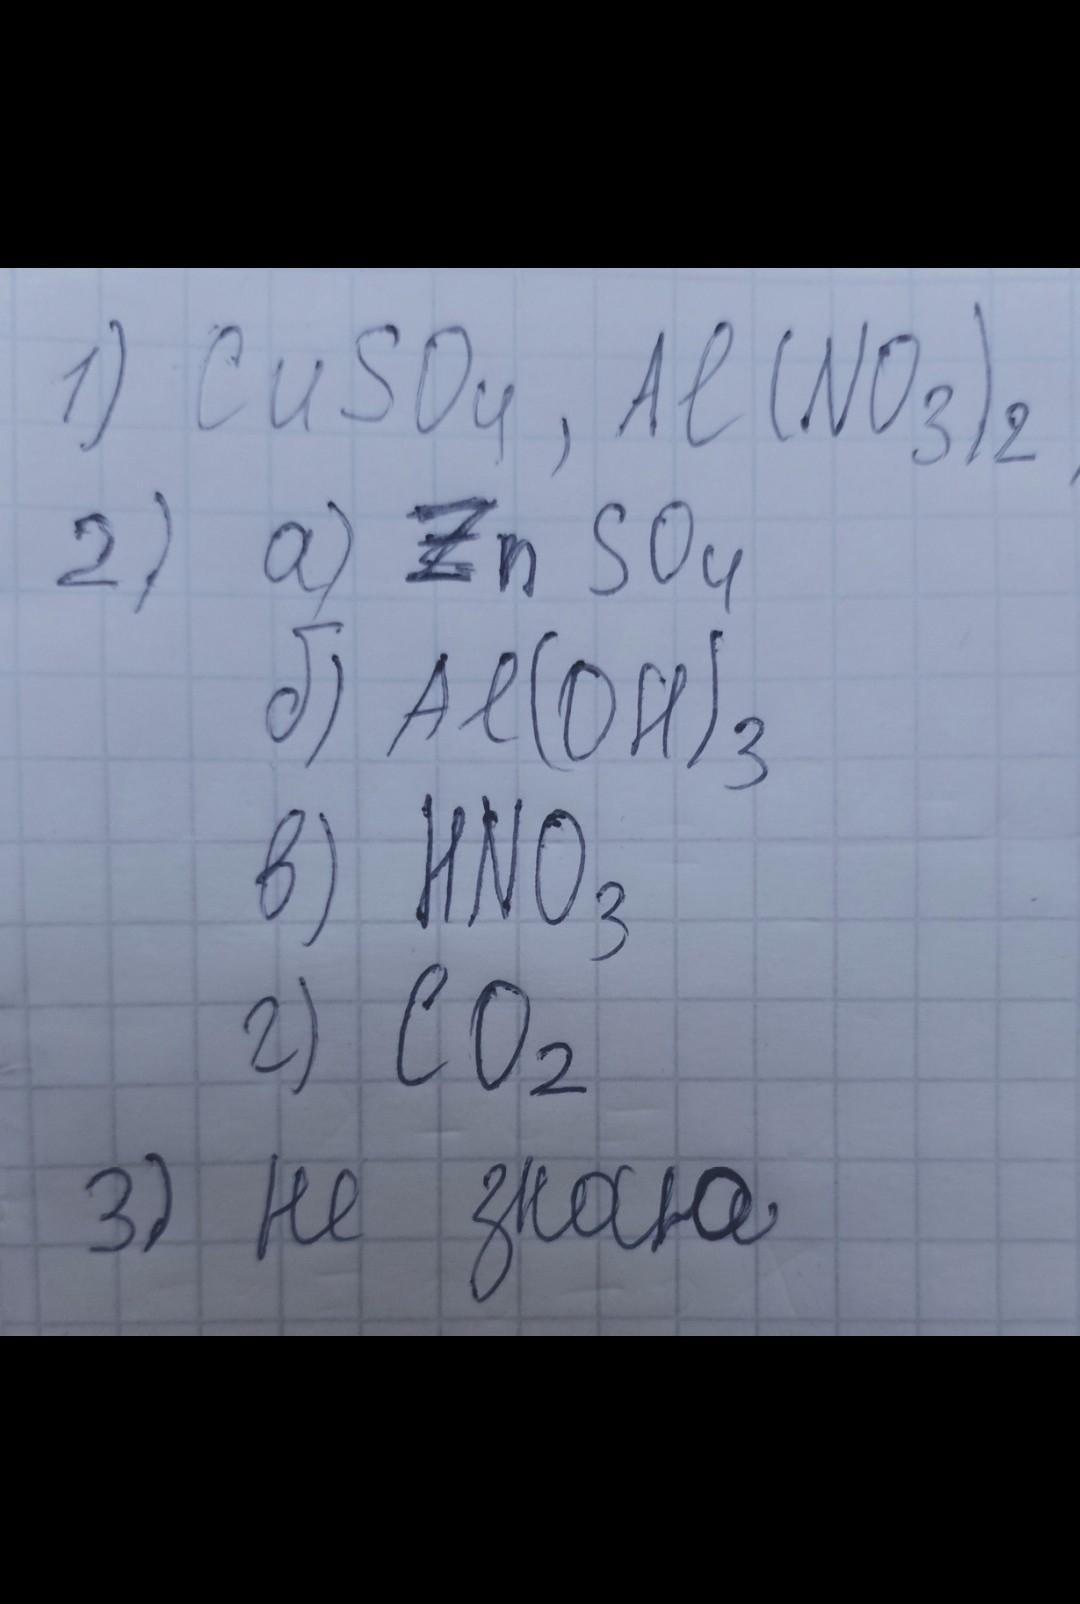 1) CuSO₄, Al(NO₃)₂,
2) а) Zn SO₄
б) Al(OH)₃
в) HNO₃
г) CO₂
3) не знаю